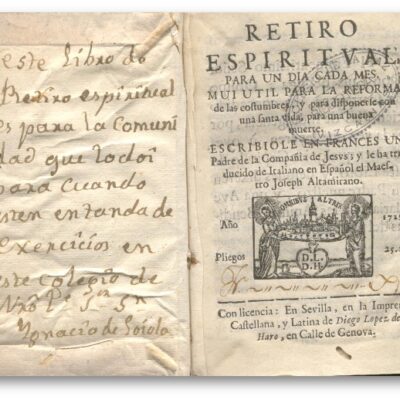 este Libro de
Retiro espiritual
es para la Comuni
dad que lo doi
para cuando
esten en tanda de
exercicios en
este colegio de
Nro Pe. Sn Sn
Ygnacio de Loiola
RETIRO
ESPIRITVAL,
PARA UN DIA CADA MES,
MUI UTIL PARA LA REFORMA
de las costumbres, y para disponerse con
una santa vida, para una buena
muerte.
ESCRIBIÒLE EN FRANCES UN
Padre de la Compañia de Jesvs; y le ha tra
ducido de Italiano en Español el Maes
tro Joseph Altamirano.
Año
Pliegos 25.
D.L.
D.H.
Con licencia: En Sevilla, en la Impren
Castellana, y Latina de Diego Lopez de
Haro, en Calle de Genova.